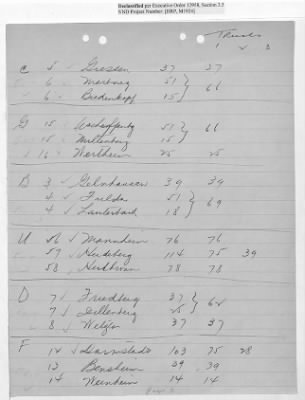 Declassified per Executive Order 12958, Section 3.5
NND Project Number: [HBP, M1926]
Trucks
1 2 3
C 5 √ Giessen 37 37
6 √ Marburg 51 } 66
6 √ Biedenkopf 15
G 15 √ Aschaffenbg 51 } 66
15 √ Miltenberg 15
16 √ Wertheim 25 25
B 3 √ Gelnhausen 39 39
4 √ Fulda 51 } 69
4 √ Lauterbach 18
U 56 √ Mannheim 76 76
57 √ Heidelberg 114 75 39
58 78 78
D 7 √ Friedberg 37 } 62
7 √ Dillenberg 25
8 √ Wetzlar 37 37
F 12 √ Darmstadt 103 75 28
13 Bensheim 39 39
14 Weinheim 14 14